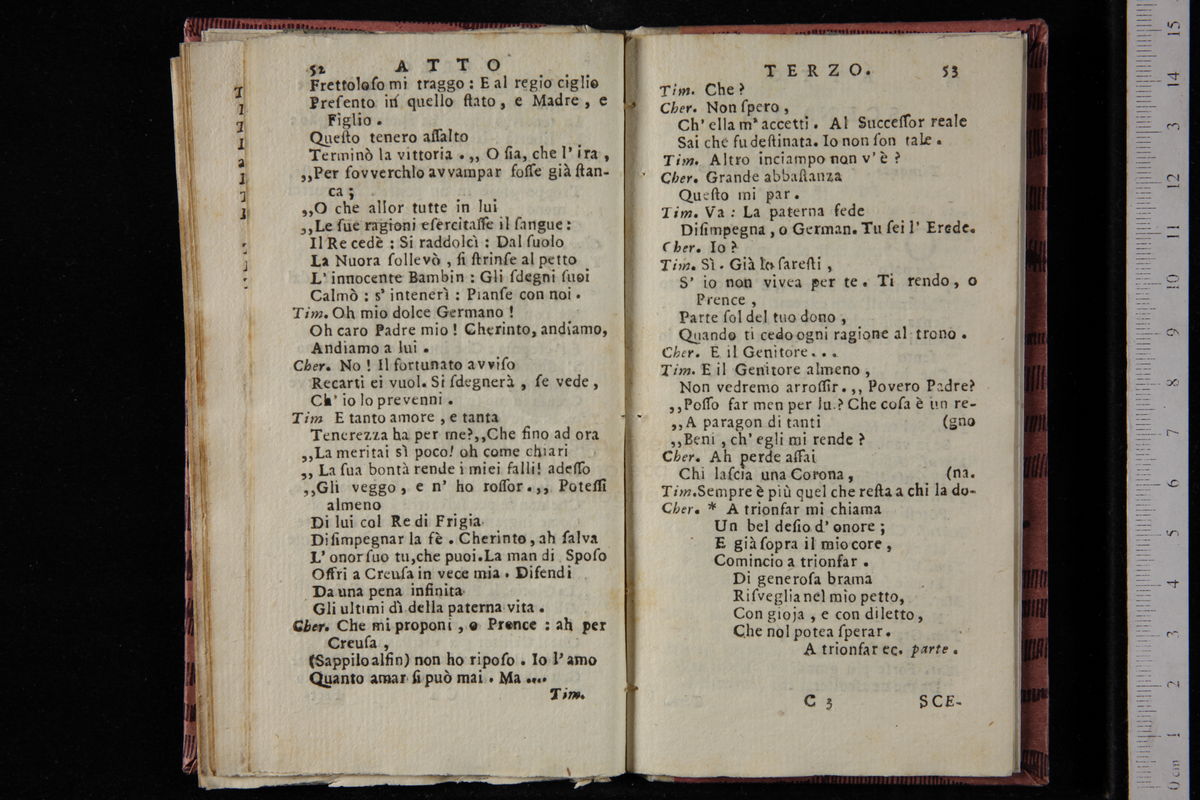 52 ATTO
Frettoloſo mi traggo : E al regio ciglio
Preſento in quello ſtato , e Madre , e
Figlio .
Queſto tenero aſſalto
Terminò la vittoria . ,, O ſia, che l' ira ,
,,Per ſovverchlo avvampar foſſe già ſtan-
ca ;
,,O che allor tutte in lui
,,Le ſue ragioni eſercitaſſe il ſangue :
Il Re cedè : Si raddolcì : Dal ſuolo
La Nuora ſollevò , ſi ſtrinſe al petto
L' innocente Bambin : Gli ſdegni ſuoi
Calmò : s' intenerì : Pianſe con noi .
Tim. Oh mio dolce Germano !
Oh caro Padre mio ! Cherinto, andiamo,
Andiamo a lui .
Cher. No ! Il fortunato avviſo
Recarti ei vuol. Si ſdegnerà , ſe vede ,
Ch' io lo prevenni .
Tim E tanto amore , e tanta
Tenerezza ha per me?,,Che fino ad ora
,,La meritai sì poco! oh come chiari
,, La ſua bontà rende i miei falli! adeſſo
,,Gli veggo , e n' ho roſſor . ,, Poteſſi
almeno
Di lui col Re di Frigia
Diſimpegnar la fè . Cherinto, ah ſalva
L' onor ſuo tu,che puoi.La man di Spoſo
Offri a Creuſa in vece mia . Difendi
Da una pena infinita
Gli ultimi dì della paterna vita .
Cher. Che mi proponi , o Prence : ah per
Creuſa ,
(Sappilo alfin) non ho ripoſo . Io l' amo
Quanto amar ſi può mai . Ma ....
Tim.
TERZO. 53
Tim. Che ?
Cher. Non ſpero ,
Ch' ella m' accetti . Al Succeſſor reale
Sai che fu deſtinata. Io non ſon tale .
Tim. Altro inciampo non v' è ?
Cher. Grande abbaſtanza
Queſto mi par .
Tim. Va : La paterna fede
Diſimpegna , o German. Tu ſei l' Erede.
Cher. Io ?
Tim. Sì . Già lo ſareſti ,
S' io non vivea per te . Ti rendo , o
Prence ,
Parte ſol del tuo dono ,
Quando ti cedo ogni ragione al trono .
Cher. E il Genitore . . .
Tim. E il Genitore almeno ,
Non vedremo arroſſir . ,, Povero Padre?
,,Poſſo far men per lu.? Che coſa è un re-
,,A paragon di tanti (gno
,,Beni , ch' egli mi rende ?
Cher. Ah perde aſſai
Chi laſcia una Corona , (na.
Tim.Sempre è più quel che reſta a chi la do-
Cher. * A trionfar mi chiama
Un bel deſio d' onore ;
E già ſopra il mio core ,
Comincio a trionfar .
Di generoſa brama
Riſveglia nel mio petto,
Con gioja , e con diletto,
Che nol potea ſperar .
A trionfar ec. parte .
C 3 SCE-